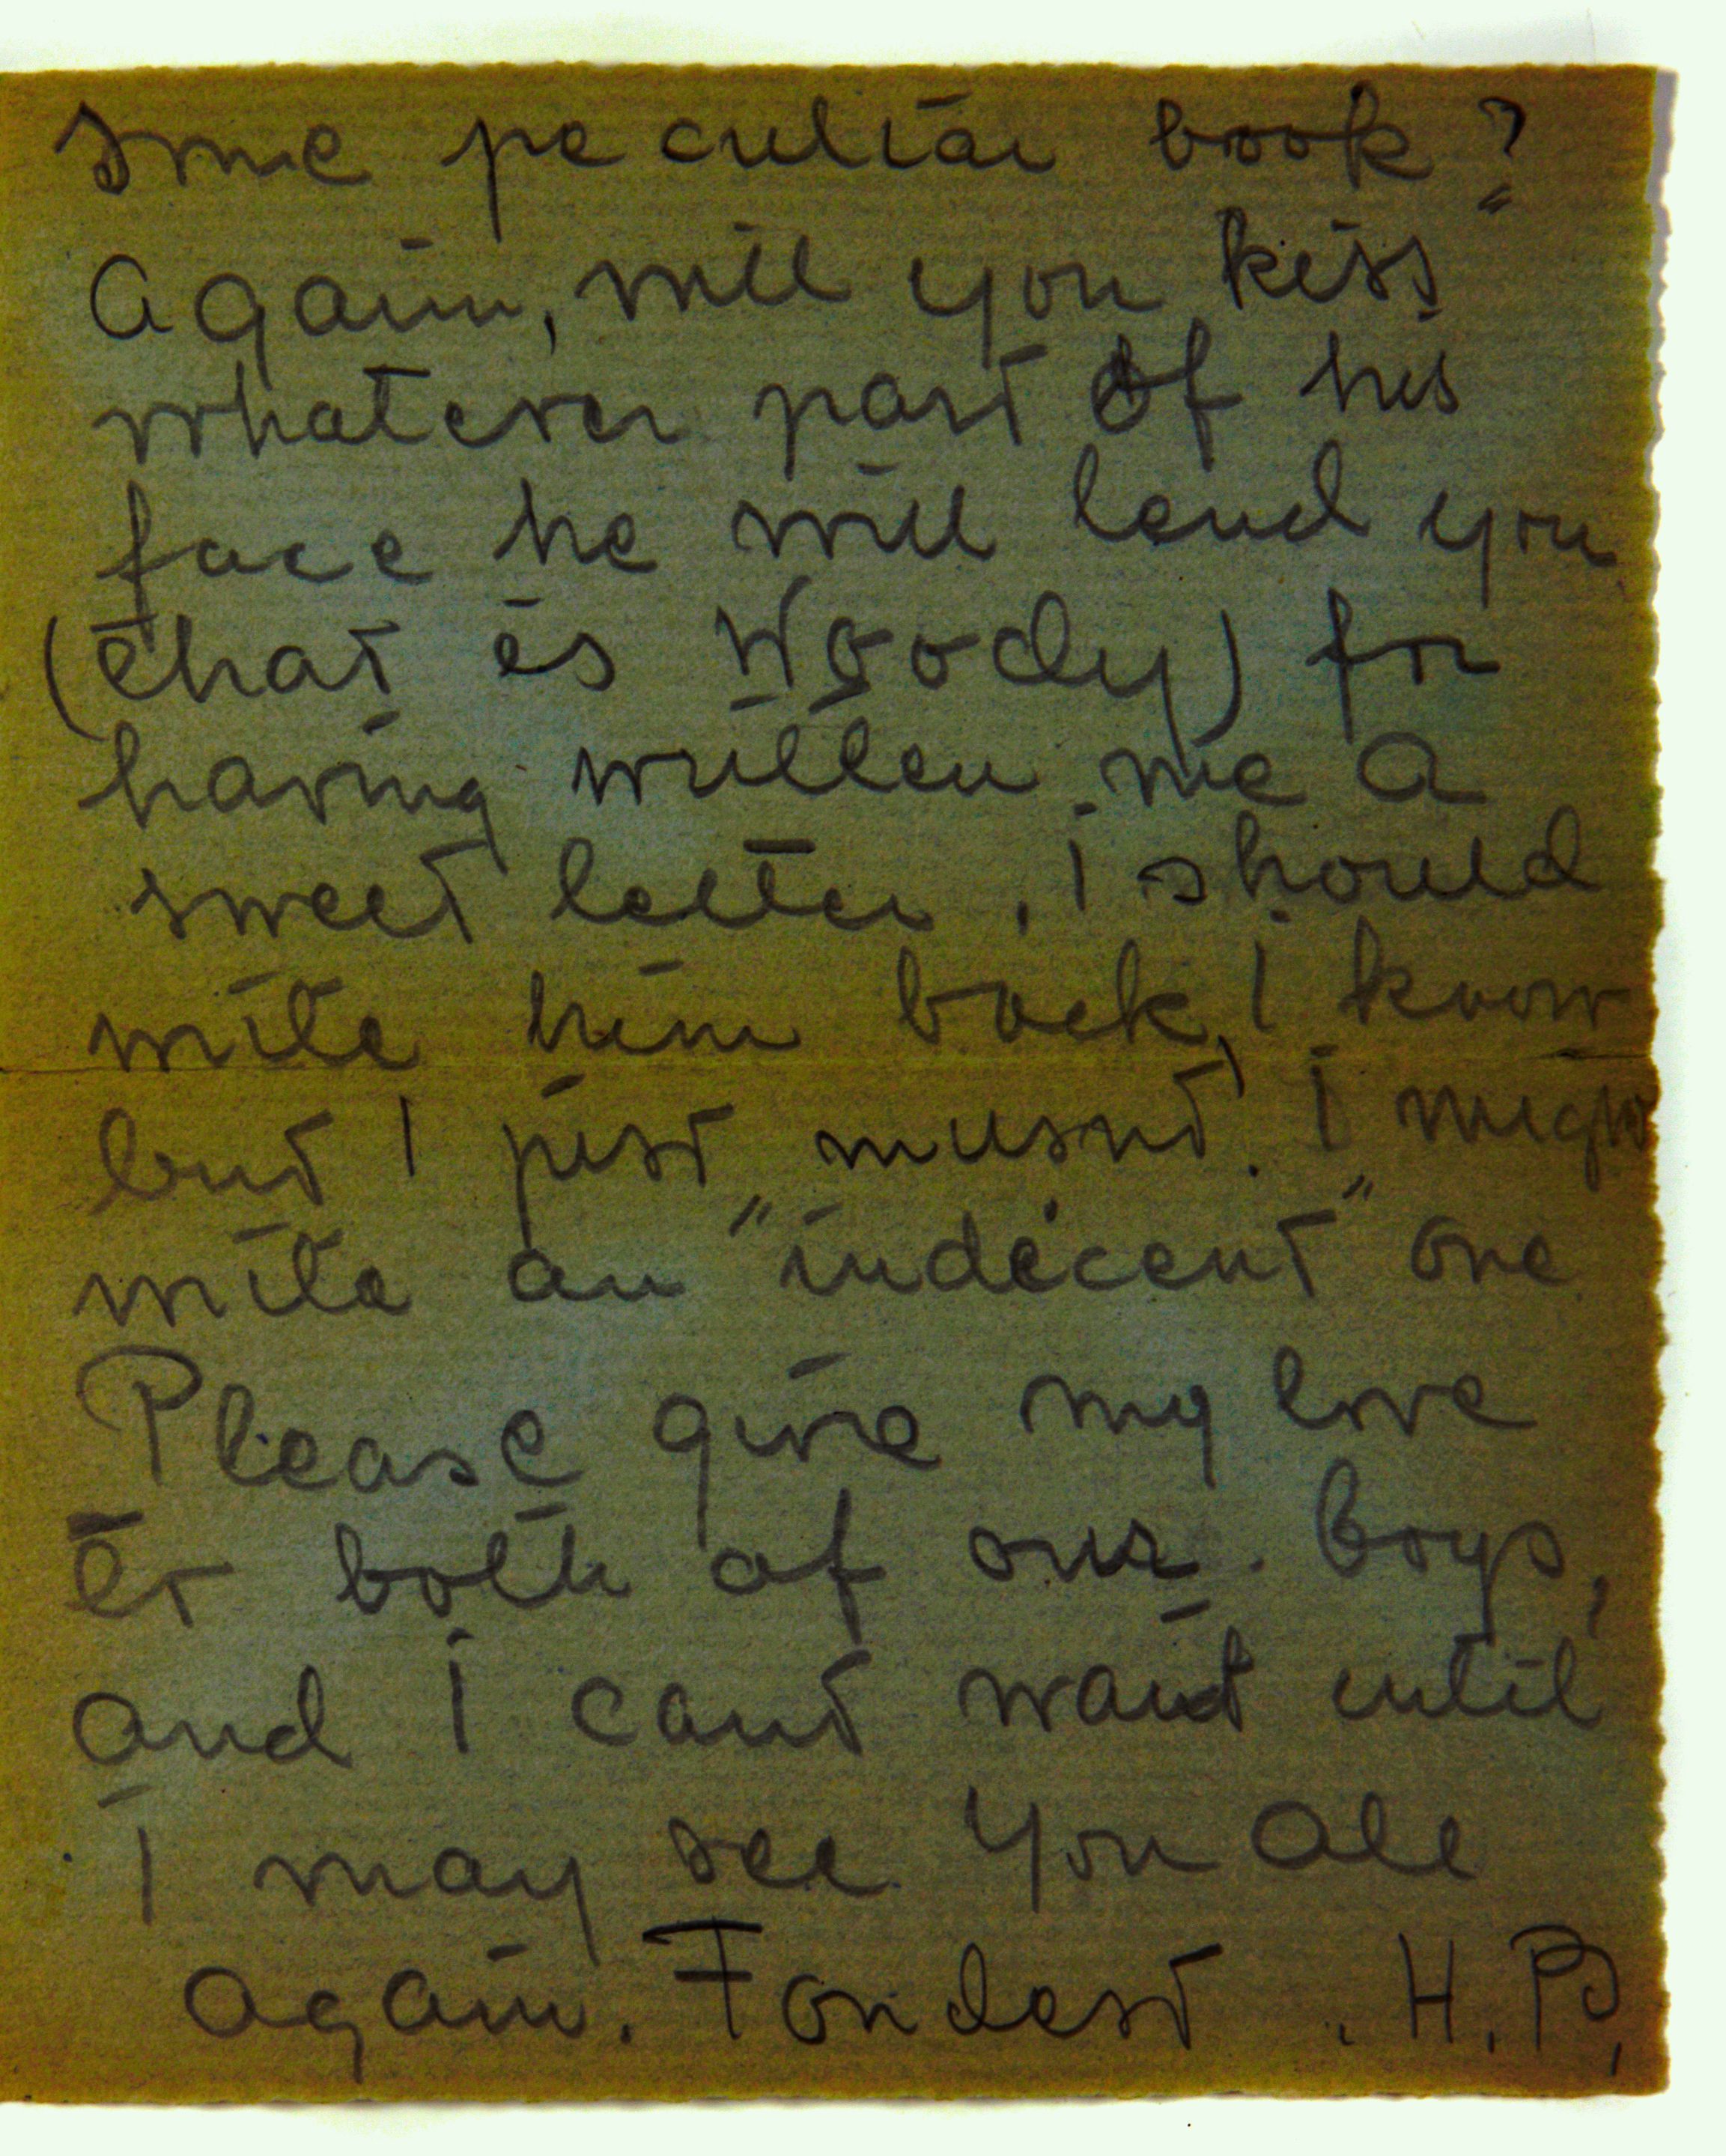 some peculiar book?"
Again, will you kiss
whatever part of his
face he will lend you
(that is Woody) for
having written me a
sweet letter. i should
write him back, I know
but I just musnt. I might
write an "indecent" one
Please give my love
to both of our boys,
and I cant wait until
I may see you all
again. Fondest. H.P.